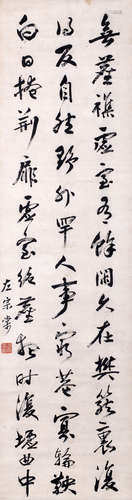 無塵襍虛室有餘閒久在樊籠裏復
得反自然野外罕人事窮巷寡輪鞅
白日掩荊扉虛室絕塵想時復墟曲中
左宗棠